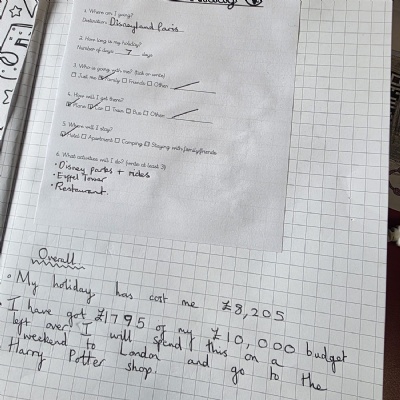 Holiday
1. Where am I going?
Destination: Disneyland Paris
2. How long is my holiday?
Number of days 7 days
3. Who is going with me? (tick or write)
Just me Family Friends Other
4. How will I get there?
Plane Car Train Bus Other
5. Where will I stay?
Hotel Apartment Camping Staying with family/friends
6. What activities will I do? (write at least 3)
• Disney parks + rides
• Eiffel Tower
• Restaurant.
Overall
• My holiday has cost me £8,205
• I have got £1795 of my £10,000 budget
left over I will spend this on a
weekend to London and go to the
Harry Potter shop.